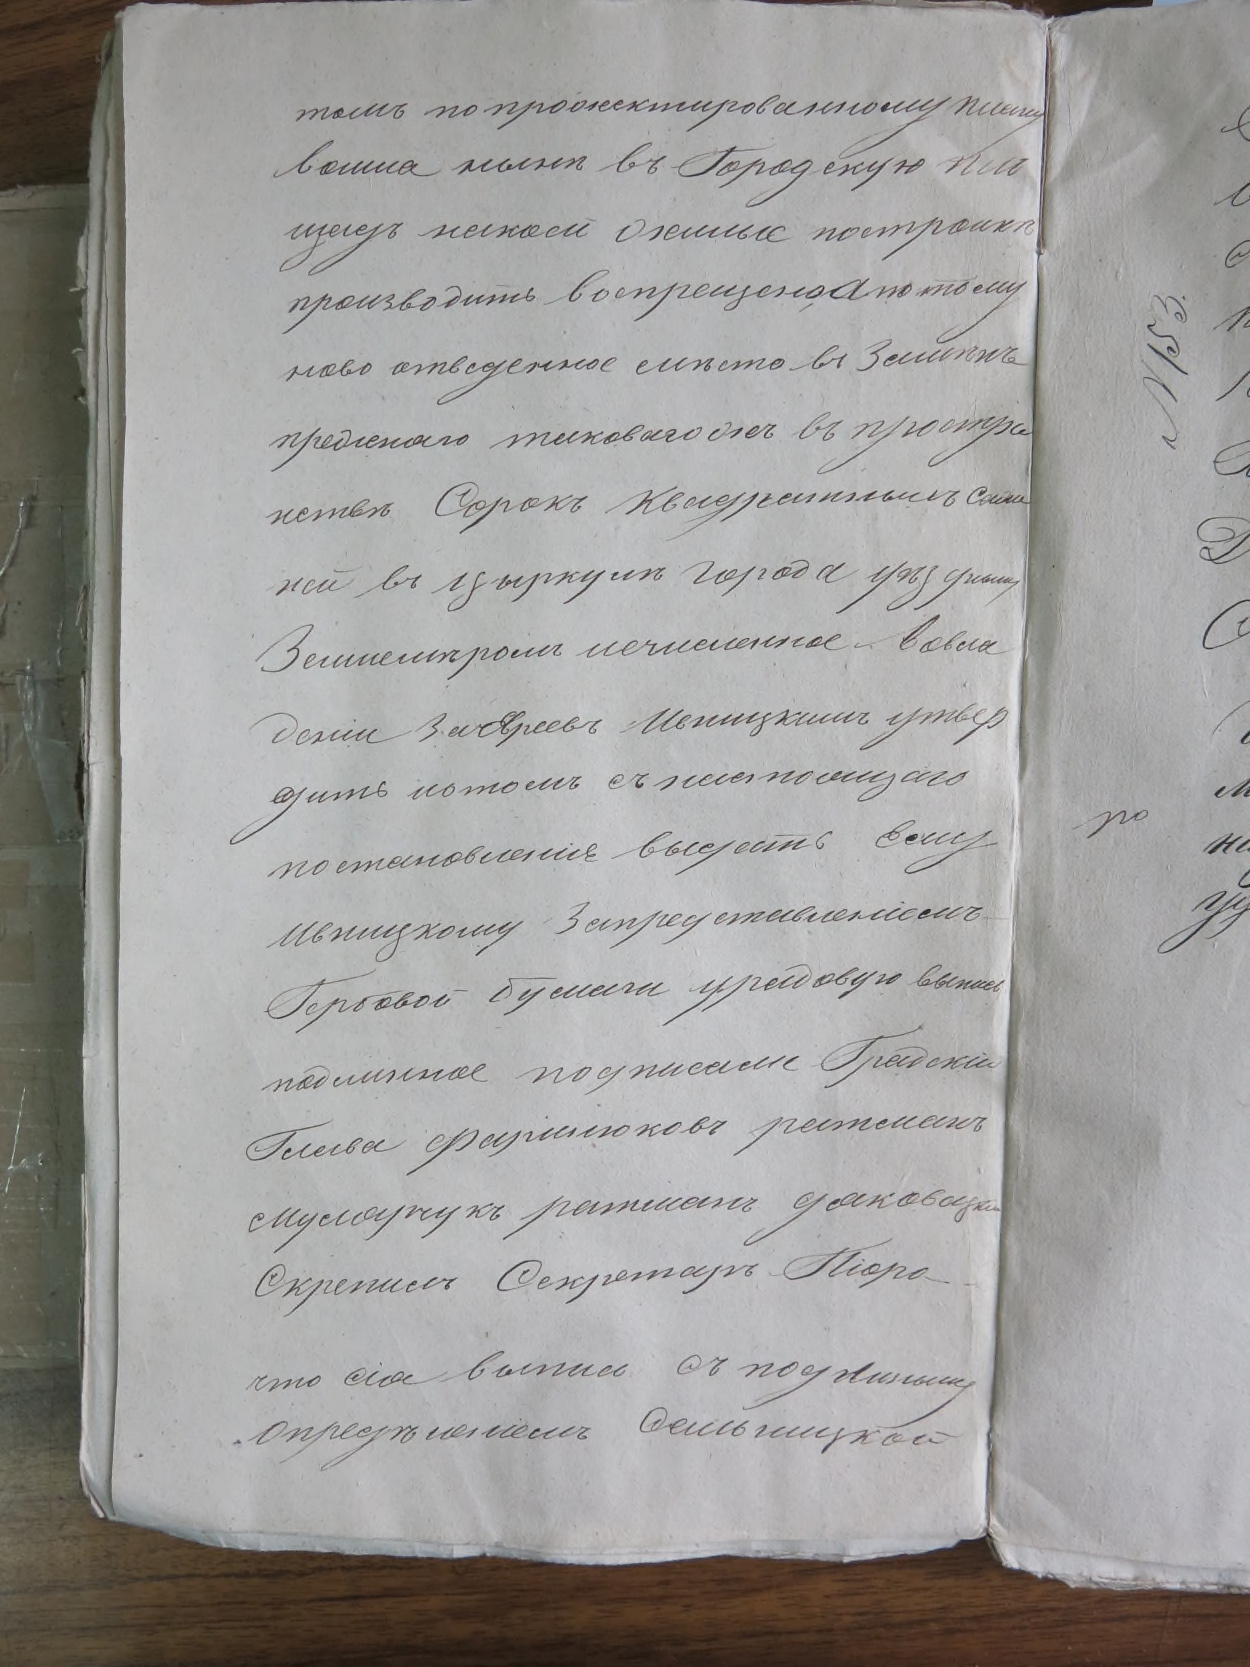 томъ по проожектированному плану
вошла нынѣ въ Городскую пло
щадь на коей жилыхъ построикъ
производить воспрещено, а потому
ново отведенное мѣсто въ Замѣнъ
прежняго таковагожъ въ простра
нствѣ Сорокъ Квадратныхъ Саже
ней въ цыркулѣ города уѣзднымъ
Землемѣромъ исчисленное во вла
дѣніи За Евреевъ Ивницкимъ утвер
дить и о томъ съ настоящаго
постановленія выдать Ему
Ивницкому За представленіемъ
Гербовой бумаги урядовую выпись
подлинное подписали Градскій
Глава ратманъ
ратманъ
Скрепилъ Секретарь Піоро
что сія выпись съ подлинным
опредѣленіемъ Сальницкой
№ 53.
ро